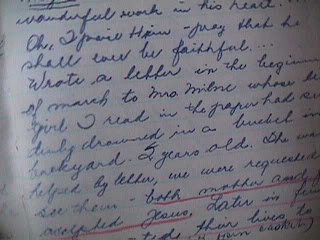 wonderful work in his heart.
Oh, I praise Him - pray that he
shall ever be faithful....
Wrote a letter in the beginn
of march to Mrs Milne whose be
girl I read in the paper had
drowned in a bucket in
backyard. 2 years old. She was
helped by letter, we were requested
see them - both mother and
accepted Jesus. Later in
their lives to